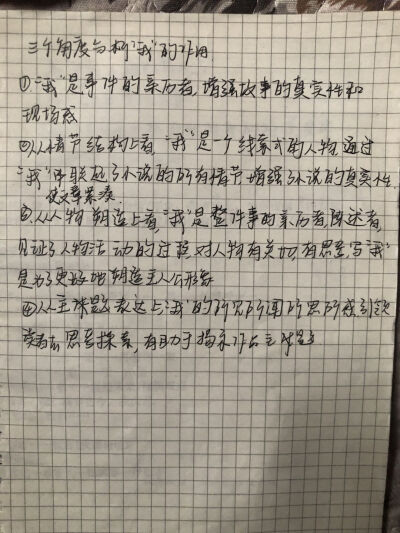 三个角度分析"我"的作用
①"我"是事件的亲历者,增强故事的真实性和
现场感
②从情节结构上看,"我"是一个线索式的人物,通过
"我"串联起了小说的所有情节,增强了小说的真实性,
使文章紧凑.
③从人物塑造上看,"我"是整件事的亲历者,陈述者,
见证了人物活动的过程,对人物有关切,有思考,写"我"
是为了更好地塑造主人公形象
④从主体题表达上,"我"的所见所闻所思所感引领
读者在思考探索,有助于揭示作品主体题